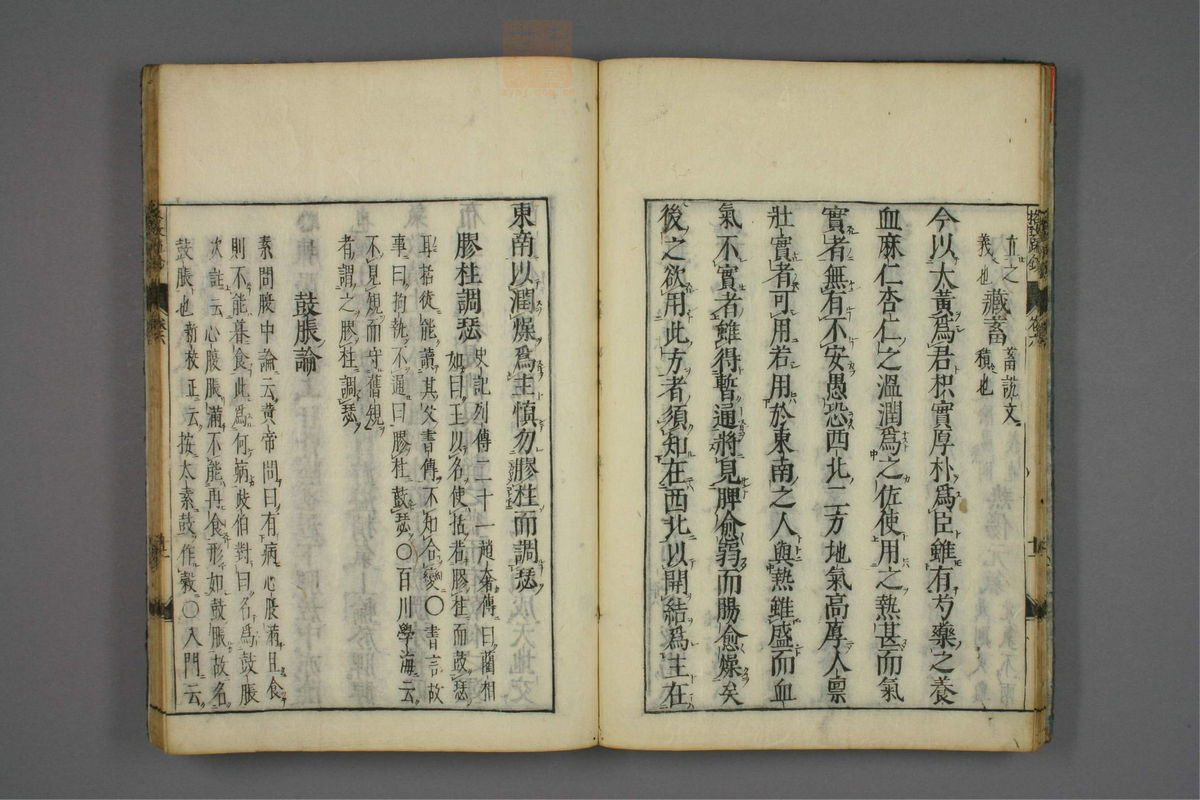 直之
義也
藏畜
畜說文
積也
今以大黃為君枳實厚朴為臣雖有芍藥之養
血麻仁杏仁之溫潤為之佐使用之熱甚而氣
實者無有不安愚恐西北二方地氣高厚人禀
壯實者可用若用於東南之人與熱雖盛而血
氣不實者雖得暫通將見脾愈弱而腸愈燥矣
後之欲用此方者須知在西北以開結為主在
東南以潤燥為主慎勿膠柱而調瑟
膠柱調瑟
史記列傳二十一趙奢傳曰藺相
如曰王以名使括若膠柱而鼓瑟
耳括徒能讀其父書傳不知合變〇書言故
事曰拘執不通曰膠柱鼓瑟〇百川學海云
不見規而守舊規
者謂之膠柱調瑟
鼓脹論
素問腹中論云黃帝問曰有病心腹滿旦食
則不能暮食此為何病岐伯對曰名為鼓脹
次註云心腹脹滿不能再食形如鼓脹故名
鼓脹也新校正云按太素鼓作瞉〇入門云